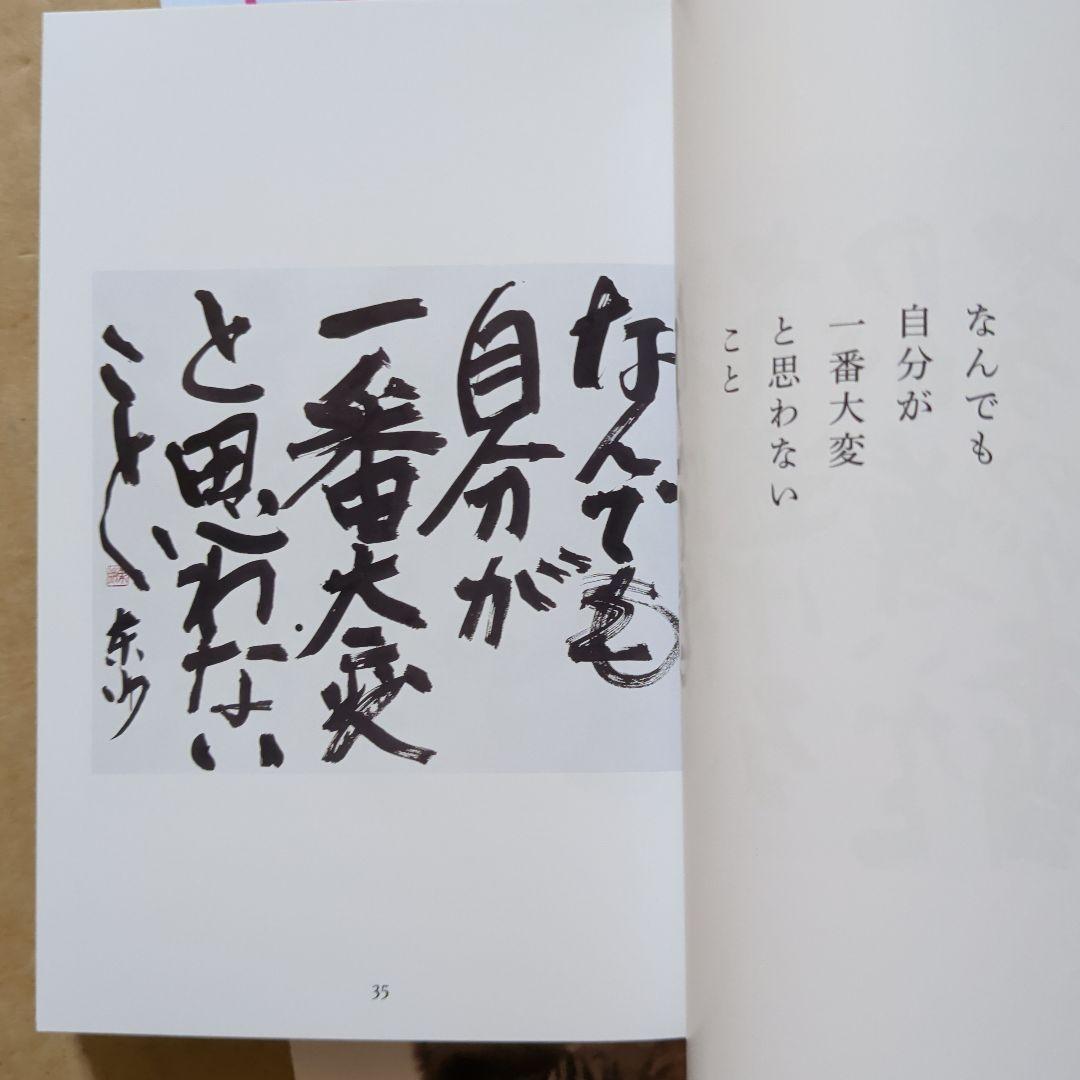 なんでも
自分が
一番大変
と思わない
こと
なんでも
自分が
一番大変
と思わない
こと
35